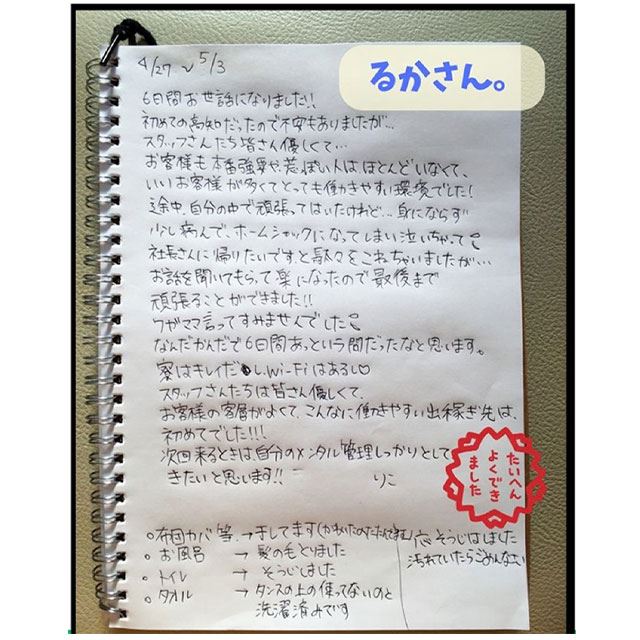 るかさん。
4/27〜5/3
6日間お世話になりました!!
初めての高知だったので不安もありましたが…
スタッフさんたち皆さん優しくて…
お客様も本番強要や荒っぽい人はほとんどいなくて、
いいお客様が多くてとっても働きやすい環境でした!
途中、自分の中で頑張ってはいたけれど…身にならず
少し病んで、ホームシックになってしまい泣いちゃって
社長さんに帰りたいですと駄々をこねちゃいましたが…
お話を聞いてもらって楽になったので最後まで
頑張ることができました!!
ワガママ言ってすみませんでした
なんだかんだで6日間あっという間だったなと思います。
寮はキレイだし、Wi-Fiはあるし♡
スタッフさんたちは皆さん優しくて、
お客様の客層がよくて、こんなに働きやすい出稼ぎ先は、
初めてでした!!!
次回来るときは自分のメンタル管理しっかりとして
きたいと思います!! りこ
たいへん
よくでき
ました
○布団カバー等、→干してます(かわいたのたたんでます)
○お風呂 → 髪の毛とりました
○トイレ → そうじしました
○タオル → タンスの上の使ってないのと
洗濯済みです
応そうじはしました
汚れていたらごめんなさい